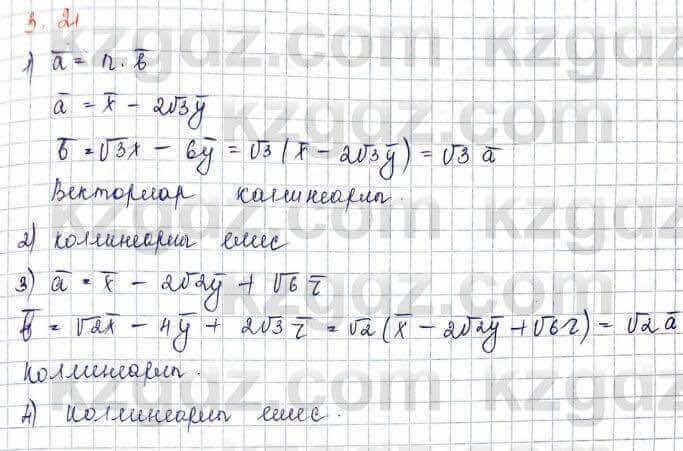 3. 21
1) a̅ = n · b̅
a̅ = x̅ - 2√3y̅
b̅ = √3x - 6y̅ = √3 (x̅ - 2√3y̅) = √3 a̅
Векторлар коллинеарлы.
2) коллинеарлы емес
3) a̅ = x̅ - 2√2y̅ + √6 z̅
b̅ = √2x̅ - 4y̅ + 2√3 z̅ = √2 (x̅ - 2√2y̅ + √6z) = √2 a̅
Коллинеарлы.
4) Коллинеарлы емес.
kzgdz.com